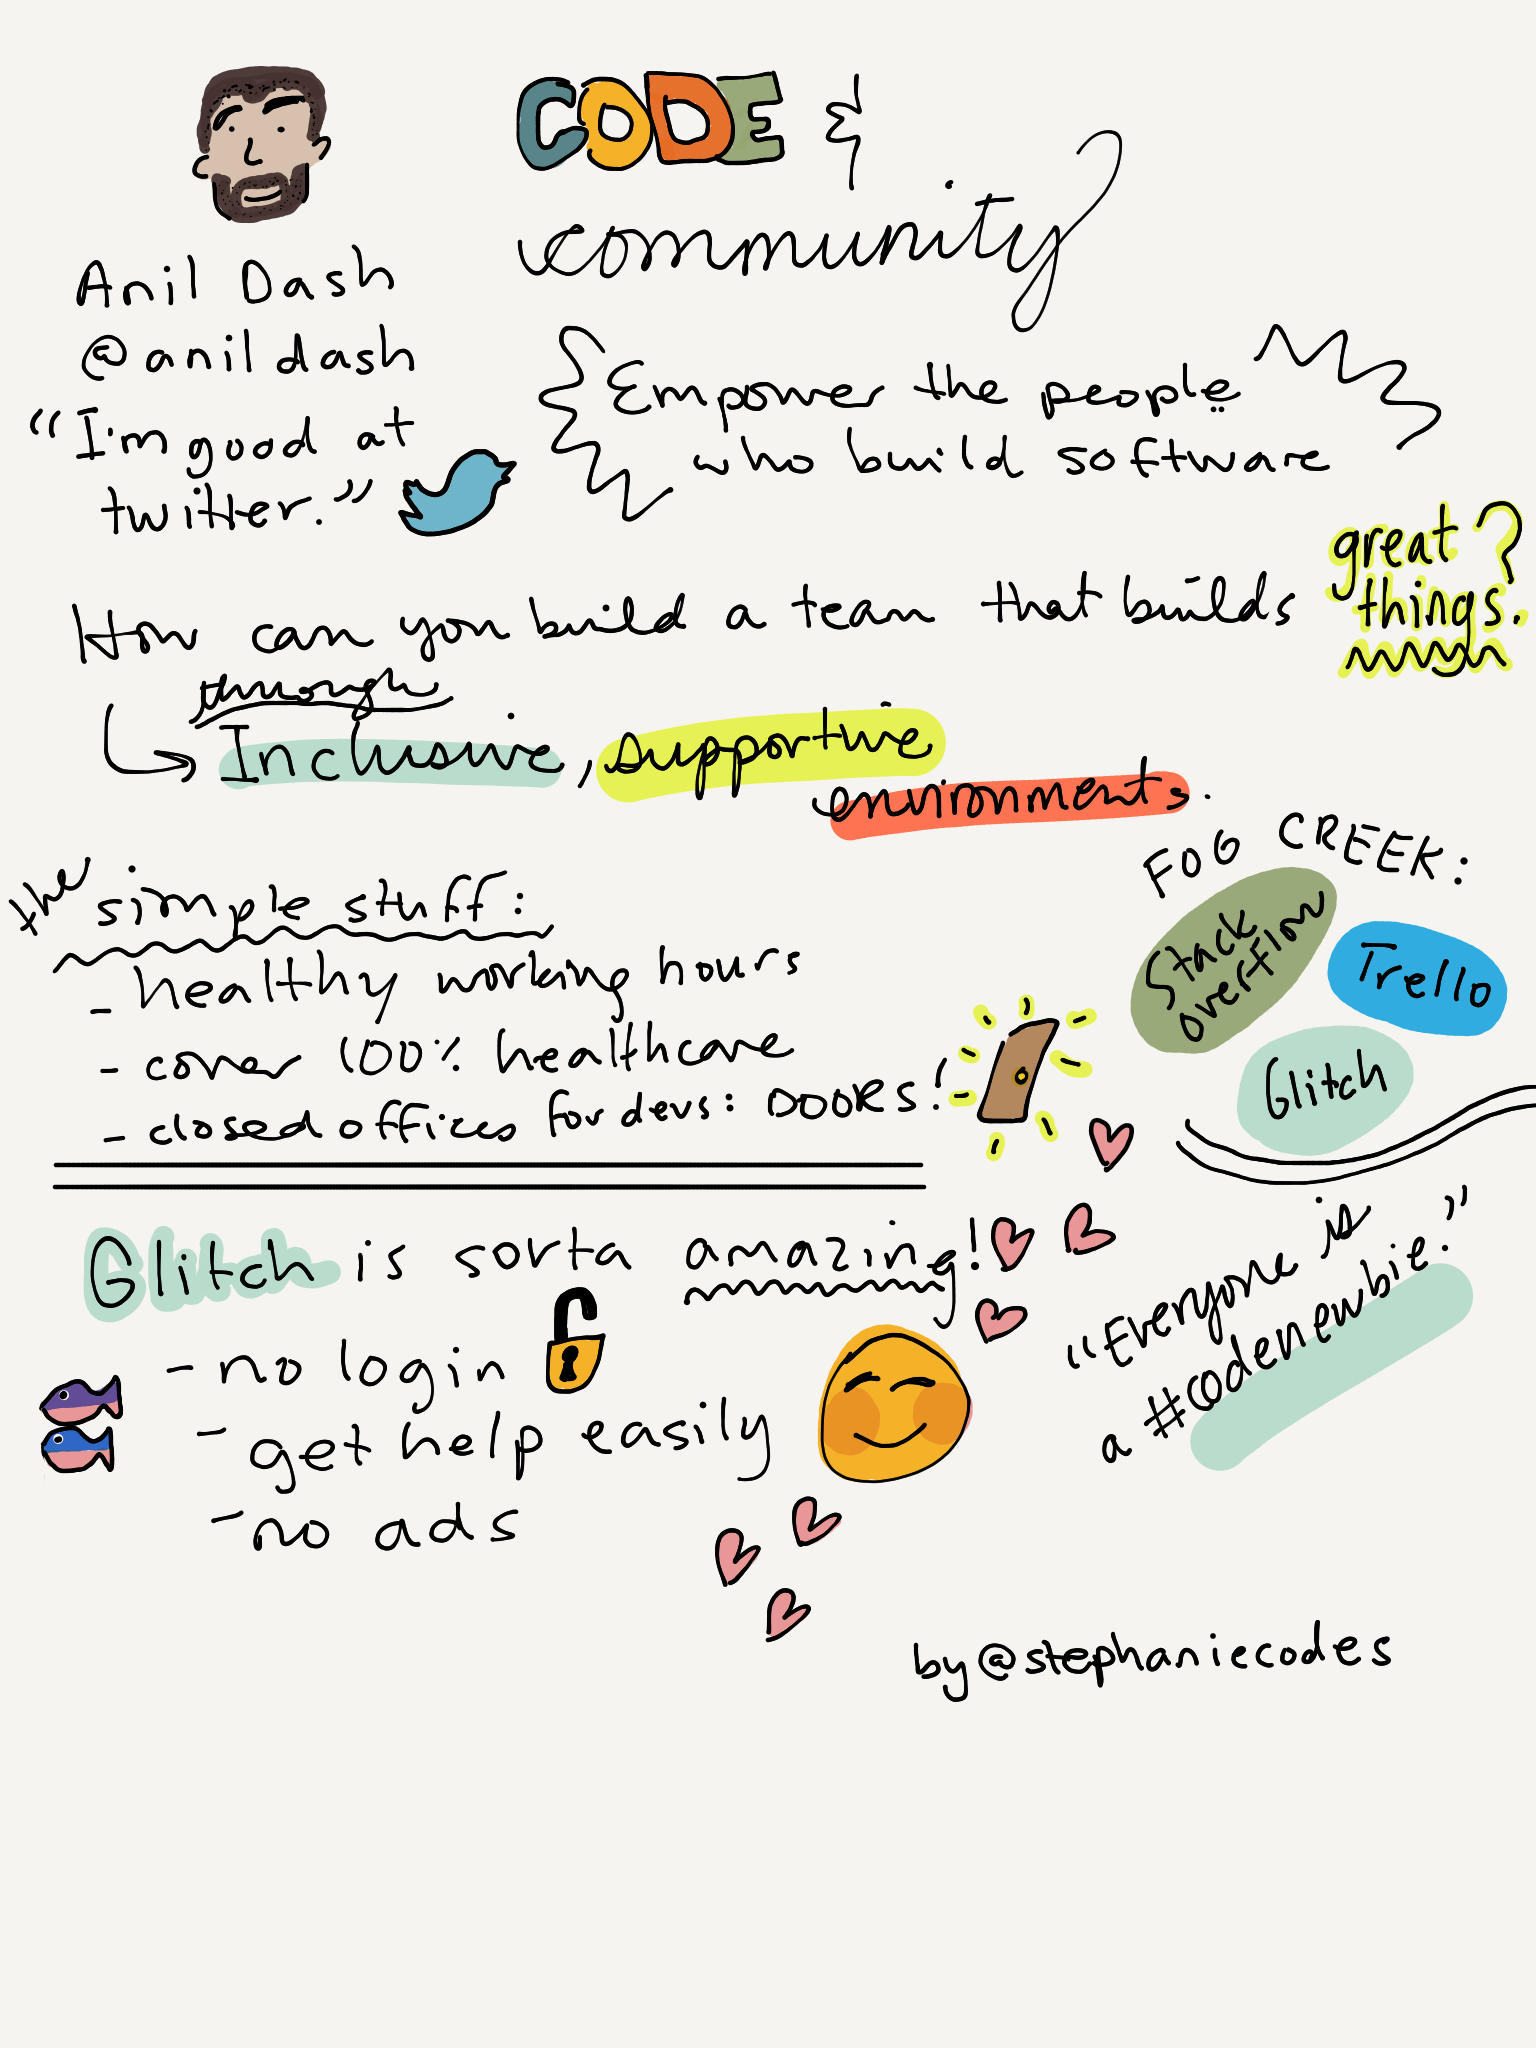 CODE &
community
Anil Dash
@anildash
"I'm good at
twitter."
Empower the people
who build software
How can you build a team that builds
great
things.?
through
Inclusive, supportive
environments.
the simple stuff:
- healthy working hours
- cover 100% healthcare
- closed offices for devs: DOORS!
FOG CREEK:
Stack
overflow
Trello
Glitch
Glitch is sorta amazing!
- no login
- get help easily
- no ads
"Everyone is
a #codenewbie."
by @stephaniecodes